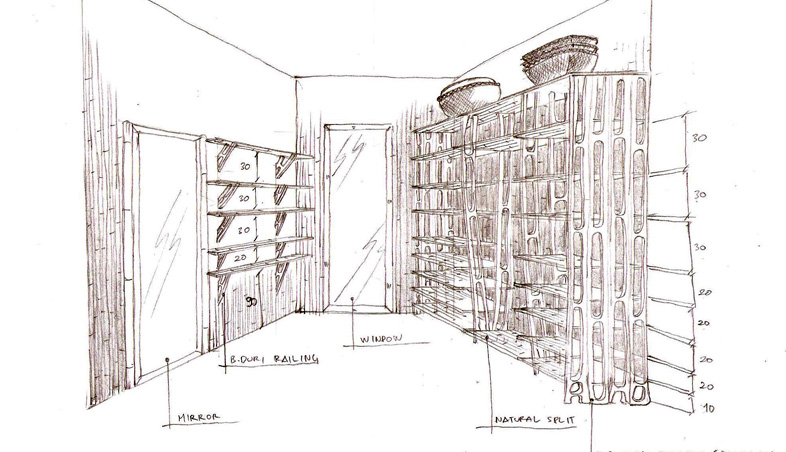 30
30
30
20
90
30
30
30
20
20
20
20
10
WINDOW
B.DURI RAILING
MIRROR
NATURAL SPLIT